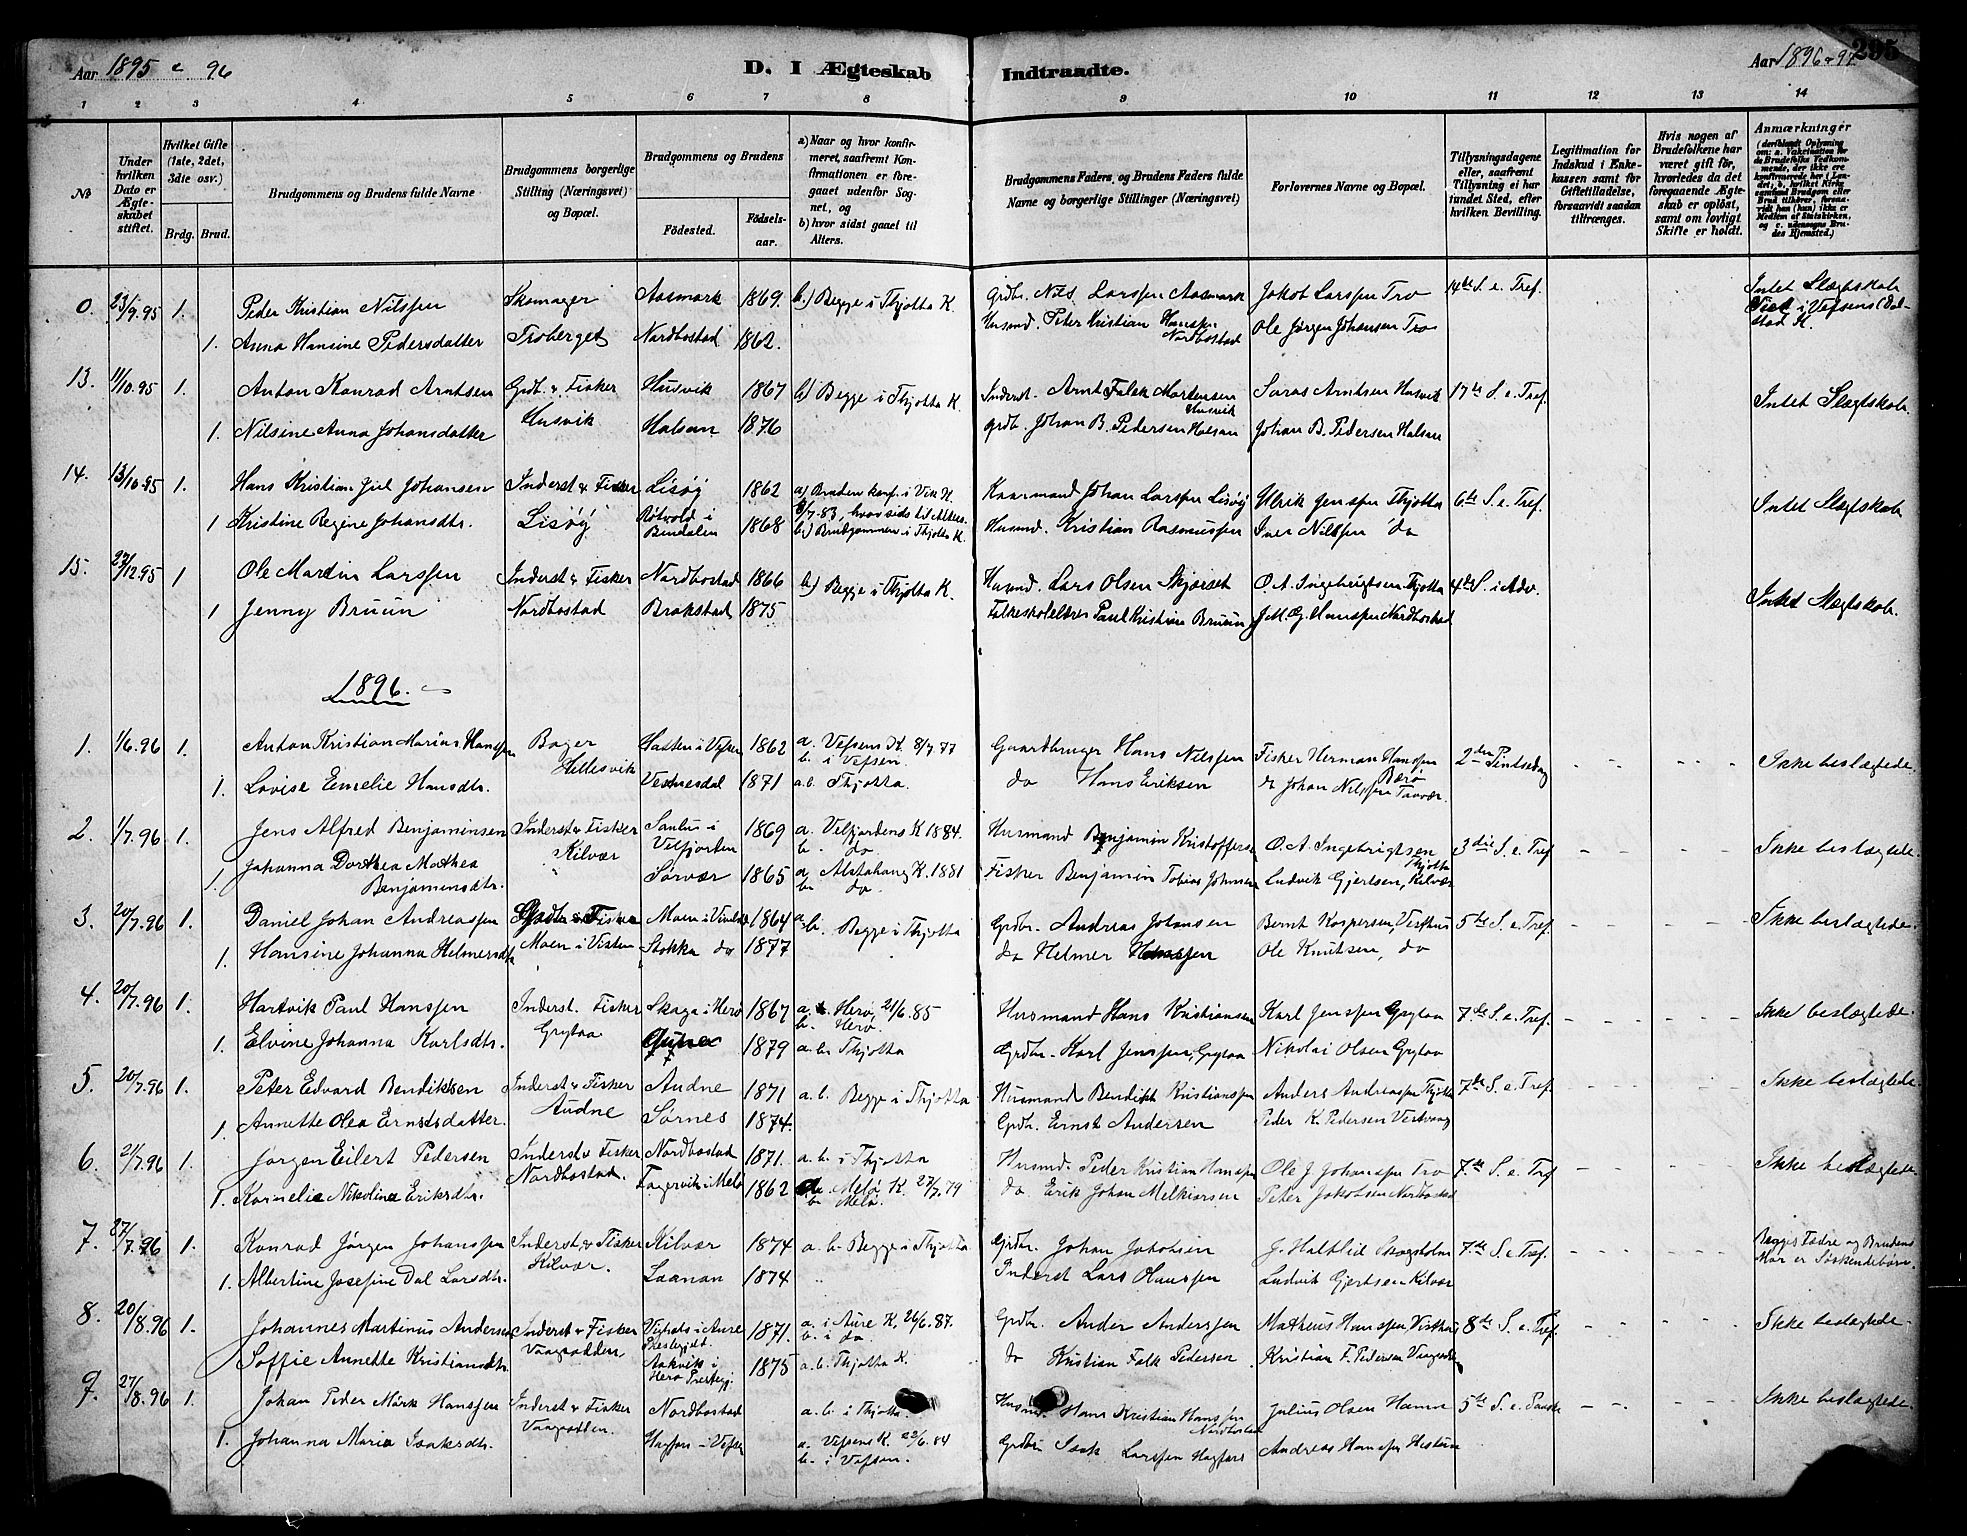 Aar 1895 & 96
D. I Ægteskab
Indtraadte.
Aar 1896 & 97
295
1 2 3 4 5 6 7 8 9 10 11 12 13 14
No
Under hvilken Dato er Ægteskabet stiftet.
Hvilket Gifte (1ste, 2det, 3die osv.)
Brdg. Brud.
Brudgommens og Brudens fulde Navne
Brudgommens borgerlige Stilling (Næringsvei) og Bopæl.
Brudgommens og Brudens
Fødested.
Fødselsaar.
a) Naar og hvor konfirmeret, saafremt Konfirmationen er foregaaet udenfor Sognet, og
b) hvor sidst gaaet til Alters.
Brudgommens Faders, og Brudens Faders fulde Navne og borgerlige Stillinger (Næringsvei)
Forlovernes Navne og Bopæl.
Tillysningsdagene eller, saafremt Tillysning ei har fundet Sted, efter hvilken Bevilling.
Legitimation for Indskud i Enkekassen samt for Giftetilladelse, forsaavidt saadan tiltrænges.
Hvis nogen af Brudefolkene har været gift før, hvorledes da det foregaaende Ægteskab er opløst, samt om lovligt Skifte er holdt.
Anmærkninger
0. 23/9.95 1. Peder Kristian Nilssen Skomager Aasmark 1869. b.) Begge i Thjotta K. Grdbr. Nils Larssen Aasmark Jakob Larssen Tro 14de S. e. Tref. Intet Slægtskab
1. Anna Hansine Pedersdatter Troberget Nordbostad 1862. Husmd. Peter Kristian Hanssen Nordbostad Ole Jørgen Johansen Tro
13. 11/10.95 1. Anton Konrad Arntsen Grdb. & Fisker Husvik 1867 b) Begge i Thjotta K. Inderst. Arnt Falck Mortensen Husvik Saras Arntsen Husvik 17de S. e. Tref. Intet Slægtskab
1. Nilsine Anna Johansdatter Husvik Halsan 1876 Grdb. Johan B. Pedersen Halsan Johan B. Pedersen Halsan
14. 13/10.95 1. Hans Kristian Juel Johansen Inderst & Fisker Lisøy 1862 a) Bruden konf. i Vik K. Kaarmand Johan Larssen Lisøy Ulrik Jenssen Thjotta 6te S. e. Tref. Intet Slægtskab
1 Kristine Regine Johansdtr. Lisøy i Bindalen 1868 b) Brudgommen i Thjotta K. Husmd. Kristian Rasmussen Iver Nilssen do
15. 27/12.95 1 Ole Martin Larssen Inderst & Fisker Nordbostad 1866 b) Begge i Thjotta K. Husmd. Lars Olsen Skjørset O. A. Ingebrigtsen Thjotta 4de S. i Adv. Intet Slægtskab
1 Jenny Bruun Nordbostad Brakstad 1875 Folkeskolelærer Paul Kristian Bruun J. M. G. Hanssen Nordbostad
1896.
1. 1/6.96 1. Anton Kristian Marius Hanssen Bager i Vefsen 1862 a. Vefsens K. 8/7.77 Gaardbruger Hans Nilssen Fisker Herman Hanssen Bærø 2den Pintsedag Ikke beslægtede.
1. Lovise Emelie Hansdtr. Hellesvik 1871 a.b. Thjotta. do Hans Eriksen do Johan Nilssen
b. i Vefsen.
2. 1/7.96 1. Jens Alfred Benjaminsen Inderst & Fisker i Velfjorden 1869 a. Velfjordens K 1884. b. do Husmand Benjamin Kristoffersen O. A. Ingebrigtsen Thjotta 3die S. e. Tref Ikke beslægtede.
1. Johanna Dorthea Mathea Benjaminsdtr. Kilvær Sørvær 1865 a. Alstahaug K. 1881 b. do. Fisker Benjamin Tobias Johnsen Ludvik Gjertsen, Kilvær
3. 20/7.96 1. Daniel Johan Andreassen Grdbr. & Fisker 1864 a.b. Begge i Thjotta Grdbr. Andreas Johansen Bernt Kaspersen, Visthus 5te S. e. Tref. Ikke beslægtede.
1. Hansine Johanna Helmersdtr. Moen i Visten Stokka do 1877 do Helmer Hanssen Ole Knutsen, do
4. 20/7.96 1. Hartvik Paul Hanssen Inderst. Fisker Skaga i Herø 1867 a. Herø, 21/6.85 b. Herø. Husmand Hans Kristiansen Karl Jenssen Grytaa 7de S. e. Tref. Ikke beslægtede.
1. Elvine Johanna Karlsdtr. Grytaa 1879 a.b. Thjotta Grdbr. Karl Jenssen, Grytaa Nikolai Olsen Grytaa
5. 20/7.96 1. Peter Edvard Bendiktsen Inderst & Fisker Audne 1871 a. b. Begge i Thjotta Husmand Bendikt Kristianssen Anders Andreassen Thjotta 7de S. e. Tref. Ikke beslægtede.
1. Annette Olea Ernstsdatter. Audne Sørnes 1874. Grdbr. Ernst Andersen Peder K. Pedersen
6. 21/7.96 1. Jørgen Eilert Pedersen Inderst & Fisker Nordbostad 1871. a. b. i Thjotta Husmd. Peder Kristian Hanssen Ole J. Johanssen Tro 7de S. e. Tref Ikke beslægtede
1. Kornelie Nikoline Eriksdtr. Nordbostad. Fagervik i Melø 1862 a. Melø K. 27/7.79 b. Melø. do Erik Johan Melkiorsen Peter Jakobsen Nordbostad
7. 27/7.96 1. Konrad Jørgen Johanssen Inderst & Fisker Kilvær 1874 a. b. Begge i Thjotta Grdbr. Johan Jakobsen J. Hatklid Skogsholm 7de S. e. Tref. Begges Fædre og Brudens Mor er Søskendebørn.
1. Albertine Josefine Dal Larsdtr. Kilvær. Laanan 1874 Inderst Lars Olaussen Ludvik Gjertsen Kilvær
8. 20/8.96 1. Johannes Martinus Andersen Inderst & Fisker i Aure Prestegjel. 1871. a. i Aure K. 26/6.87. b. i do. Grdbr. Ander Anderssen Matheus Hanssen, Visthus 8de S. e. Tref. Ikke beslægtede.
1. Soffie Annette Kristiansdtr. Vaagsodden Aakvik i Herø Prestegj. 1875 a.b. Thjotta K. do Kristian Falk Pedersen Kristian F. Pedersen Vaagsodden
9. 27/8.96 1. Johan Peder Mørk Hanssen Inderst & Fisker Nordbostad a. b. i Thjotta. Husmd. Hans Kristian Hanssen Nordbostad Julius Olsen Hamn 5te S. e. Paaske Ikke beslægtede.
1. Johanna Maria Isaksdtr. Vaagsodden. i Vefsen a. Vefsens K. 22/6.84 b. i Vefsen. Grdbr. Isak Larssen Andreas Hanssen